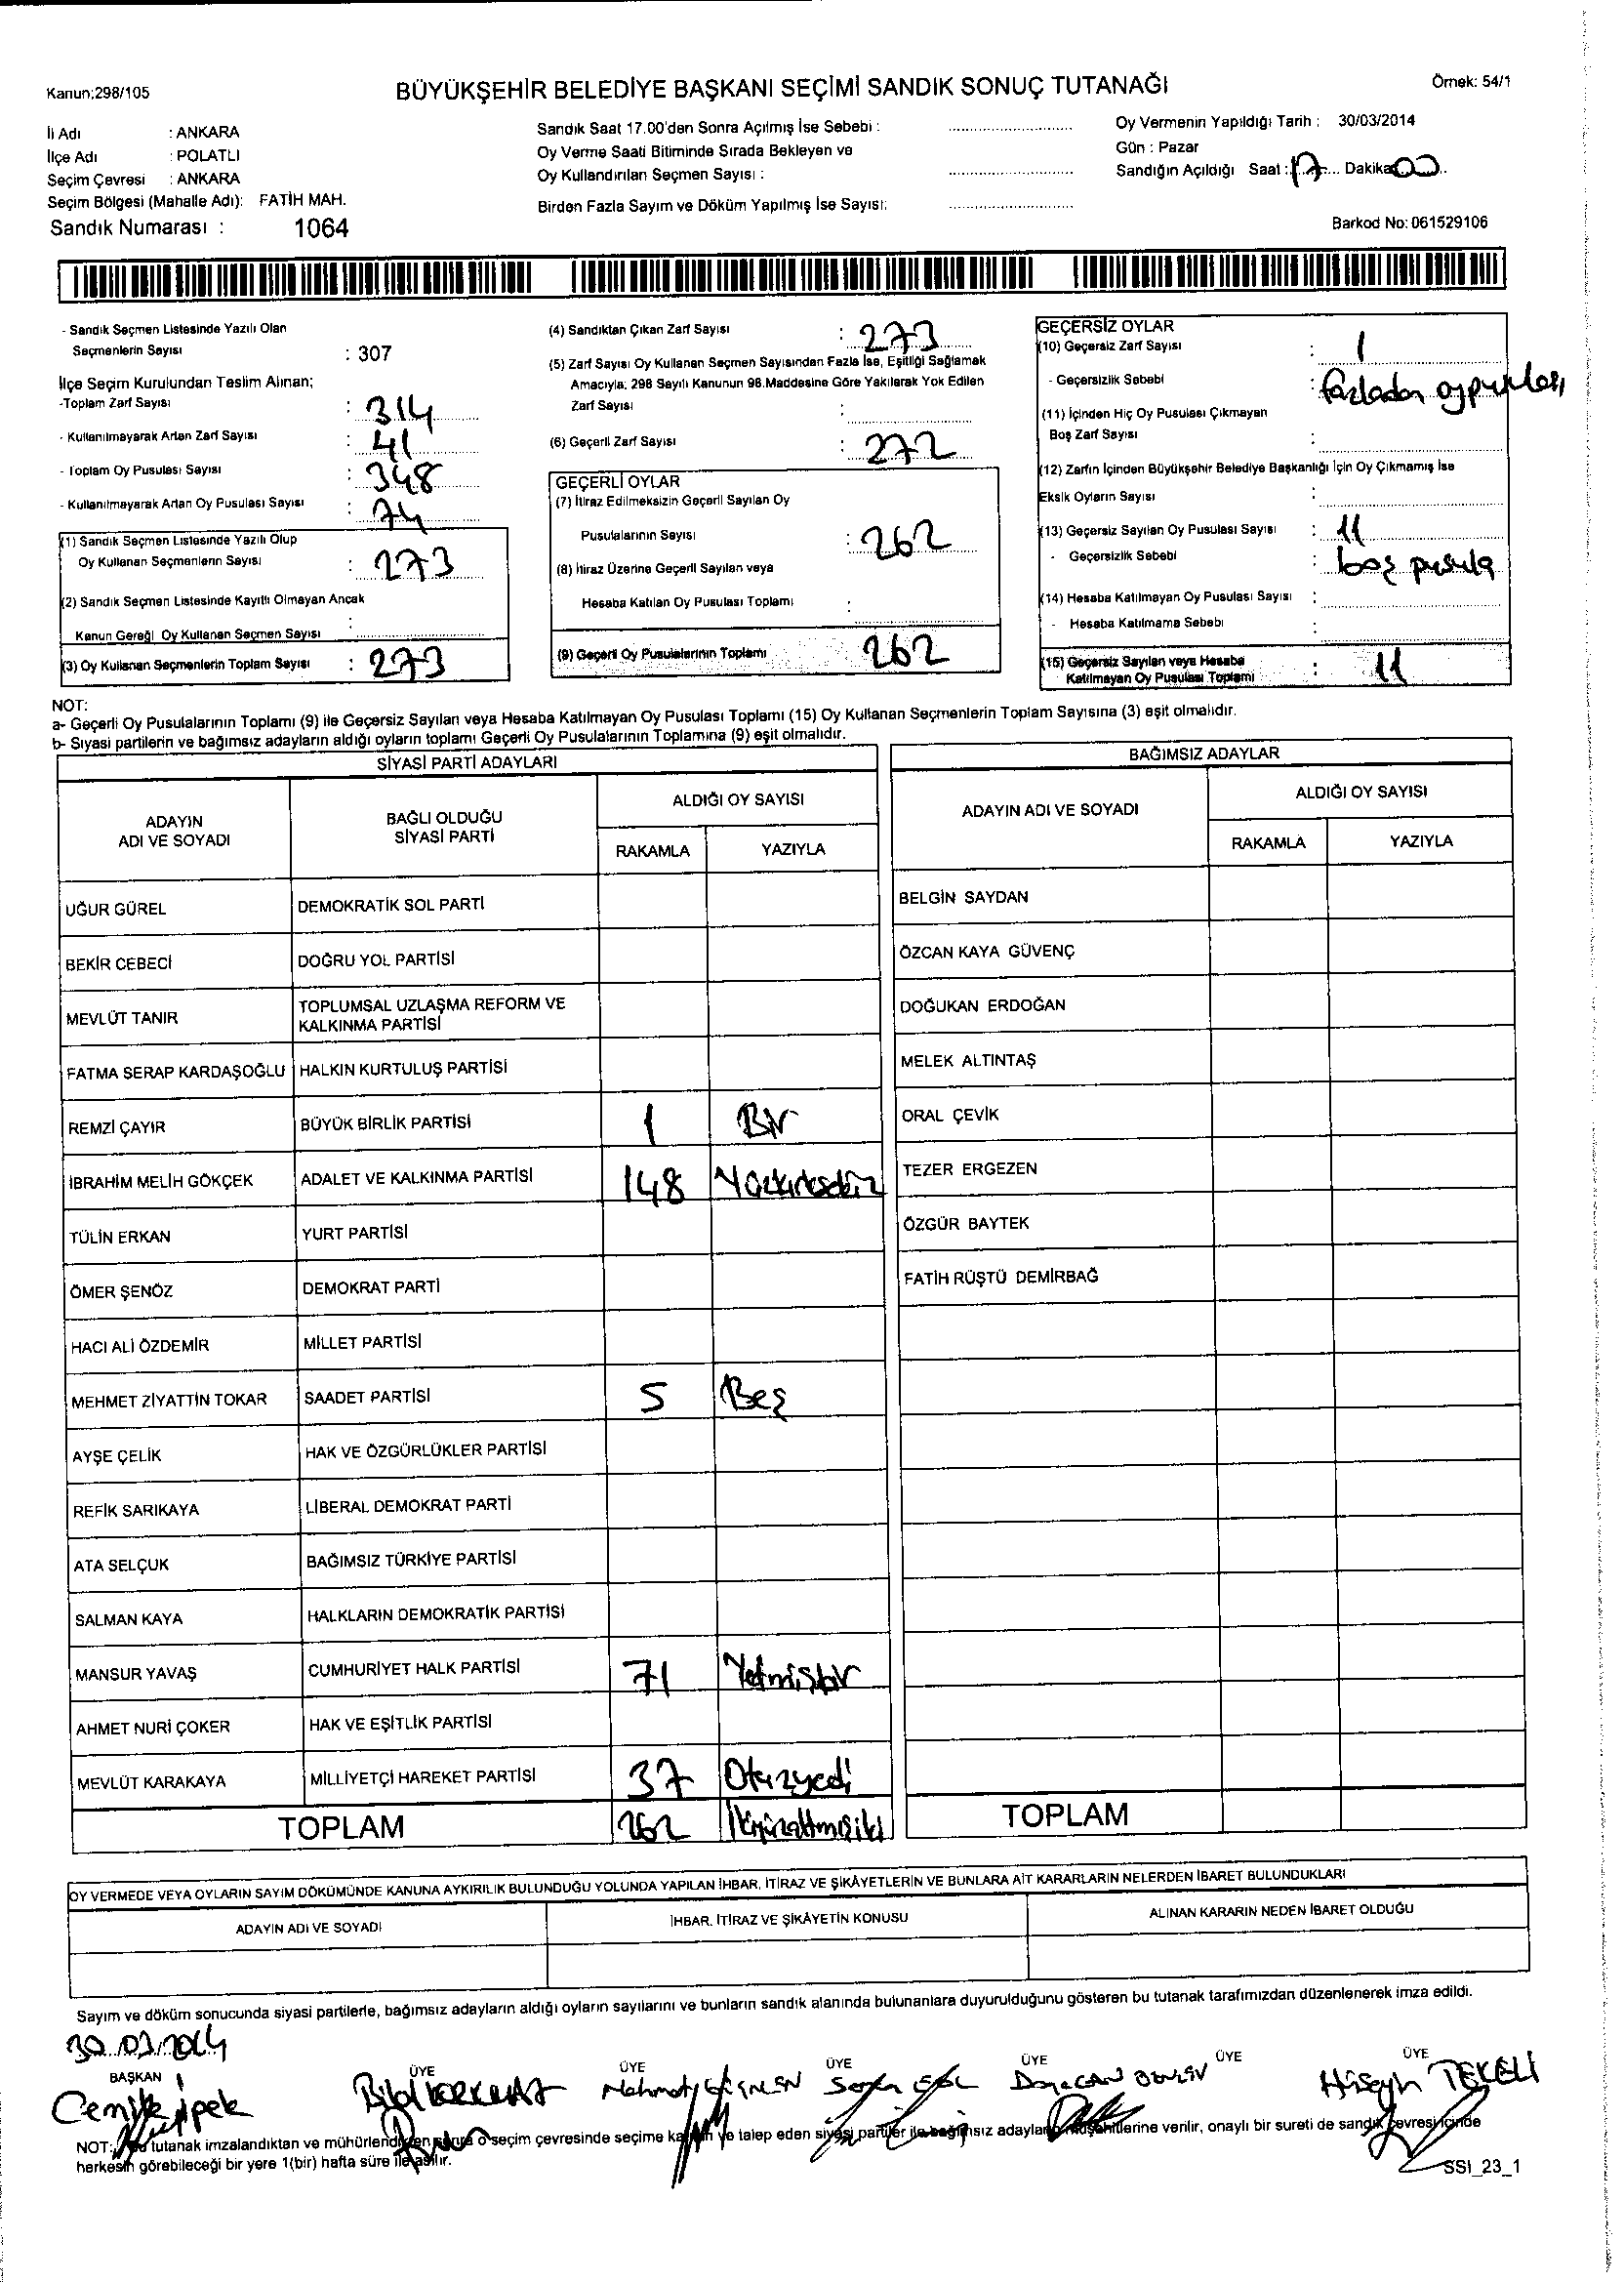 Kanun:298/105
BÜYÜKŞEHİR BELEDİYE BAŞKANI SEÇİMİ SANDIK SONUÇ TUTANAĞI
Örnek: 54/1
İli Adı : ANKARA
İlçe Adı : POLATLI
Seçim Çevresi : ANKARA
Seçim Bölgesi (Mahalle Adı): FATİH MAH.
Sandık Numarası : 1064
Sandık Saat 17.00'den Sonra Açılmış İse Sebebi :
Oy Verme Saati Bitiminde Sırada Bekleyen ve
Oy Kullandırılan Seçmen Sayısı :
Birden Fazla Sayım ve Döküm Yapılmış İse Sayısı:
Oy Vermenin Yapıldığı Tarih : 30/03/2014
Gün : Pazar
Sandığın Açıldığı Saat : 17 Dakika 00
Barkod No: 061529106
- Sandık Seçmen Listesinde Yazılı Olan
Seçmenlerin Sayısı : 307
İlçe Seçim Kurulundan Teslim Alınan;
-Toplam Zarf Sayısı : 314
- Kullanılmayarak Artan Zarf Sayısı : 41
- Toplam Oy Pusulası Sayısı : 348
- Kullanılmayarak Artan Oy Pusulası Sayısı : 74
(1) Sandık Seçmen Listesinde Yazılı Olup
Oy Kullanan Seçmenlerin Sayısı : 273
(2) Sandık Seçmen Listesinde Kayıtlı Olmayan Ancak
Kanun Gereği Oy Kullanan Seçmen Sayısı :
(3) Oy Kullanan Seçmenlerin Toplam Sayısı : 273
(4) Sandıktan Çıkan Zarf Sayısı : 273
(5) Zarf Sayısı Oy Kullanan Seçmen Sayısından Fazla İse, Eşitliği Sağlamak
Amacıyla; 298 Sayılı Kanunun 98.Maddesine Göre Yakılarak Yok Edilen
Zarf Sayısı :
(6) Geçerli Zarf Sayısı : 272
GEÇERLİ OYLAR
(7) İtiraz Edilmeksizin Geçerli Sayılan Oy
Pusulalarının Sayısı : 262
(8) İtiraz Üzerine Geçerli Sayılan veya
Hesaba Katılan Oy Pusulası Toplamı :
(9) Geçerli Oy Pusulalarının Toplamı 262
GEÇERSİZ OYLAR
(10) Geçersiz Zarf Sayısı : 1
- Geçersizlik Sebebi : fazladan oy pusulası
(11) İçinden Hiç Oy Pusulası Çıkmayan
Boş Zarf Sayısı :
(12) Zarfın İçinden Büyükşehir Belediye Başkanlığı İçin Oy Çıkmamış İse
Eksik Oyların Sayısı :
(13) Geçersiz Sayılan Oy Pusulası Sayısı : 11
- Geçersizlik Sebebi : boş pusula
(14) Hesaba Katılmayan Oy Pusulası Sayısı :
- Hesaba Katılmama Sebebi :
(15) Geçersiz Sayılan veya Hesaba
Katılmayan Oy Pusulası Toplamı : 11
NOT:
a- Geçerli Oy Pusulalarının Toplamı (9) ile Geçersiz Sayılan veya Hesaba Katılmayan Oy Pusulası Toplamı (15) Oy Kullanan Seçmenlerin Toplam Sayısına (3) eşit olmalıdır.
b- Siyasi partilerin ve bağımsız adayların aldığı oyların toplamı Geçerli Oy Pusulalarının Toplamına (9) eşit olmalıdır.
SİYASİ PARTİ ADAYLARI
ADAYIN ADI VE SOYADI
BAĞLI OLDUĞU SİYASİ PARTİ
ALDIĞI OY SAYISI
RAKAMLA YAZIYLA
UĞUR GÜREL DEMOKRATİK SOL PARTİ
BEKİR CEBECİ DOĞRU YOL PARTİSİ
MEVLÜT TANIR TOPLUMSAL UZLAŞMA REFORM VE KALKINMA PARTİSİ
FATMA SERAP KARDAŞOĞLU HALKIN KURTULUŞ PARTİSİ
REMZİ ÇAYIR BÜYÜK BİRLİK PARTİSİ 1 Bir
İBRAHİM MELİH GÖKÇEK ADALET VE KALKINMA PARTİSİ 148 Yüzkırksekiz
TÜLİN ERKAN YURT PARTİSİ
ÖMER ŞENÖZ DEMOKRAT PARTİ
HACI ALİ ÖZDEMİR MİLLET PARTİSİ
MEHMET ZİYATTİN TOKAR SAADET PARTİSİ 5 Beş
AYŞE ÇELİK HAK VE ÖZGÜRLÜKLER PARTİSİ
REFİK SARIKAYA LİBERAL DEMOKRAT PARTİ
ATA SELÇUK BAĞIMSIZ TÜRKİYE PARTİSİ
SALMAN KAYA HALKLARIN DEMOKRATİK PARTİSİ
MANSUR YAVAŞ CUMHURİYET HALK PARTİSİ 71 Yetmişbir
AHMET NURİ ÇOKER HAK VE EŞİTLİK PARTİSİ
MEVLÜT KARAKAYA MİLLİYETÇİ HAREKET PARTİSİ 37 Otuzyedi
TOPLAM 262 İkiyüzaltmışiki
BAĞIMSIZ ADAYLAR
ADAYIN ADI VE SOYADI
ALDIĞI OY SAYISI
RAKAMLA YAZIYLA
BELGİN SAYDAN
ÖZCAN KAYA GÜVENÇ
DOĞUKAN ERDOĞAN
MELEK ALTINTAŞ
ORAL ÇEVİK
TEZER ERGEZEN
ÖZGÜR BAYTEK
FATİH RÜŞTÜ DEMİRBAĞ
TOPLAM
OY VERMEDE VEYA OYLARIN SAYIM DÖKÜMÜNDE KANUNA AYKIRILIK BULUNDUĞU YOLUNDA YAPILAN İHBAR, İTİRAZ VE ŞİKÂYETLERİN VE BUNLARA AİT KARARLARIN NELERDEN İBARET BULUNDUKLARI
ADAYIN ADI VE SOYADI İHBAR, İTİRAZ VE ŞİKÂYETİN KONUSU ALINAN KARARIN NEDEN İBARET OLDUĞU
Sayım ve döküm sonucunda siyasi partilerle, bağımsız adayların aldığı oyların sayılarını ve bunların sandık alanında bulunanlara duyurulduğunu gösteren bu tutanak tarafımızdan düzenlenerek imza edildi.
30.03.2014
BAŞKAN ÜYE ÜYE ÜYE ÜYE ÜYE ÜYE
Cemile ipek Mehmet Hüseyin TEKELİ
NOT: Bu tutanak imzalandıktan ve mühürlendikten sonra o seçim çevresinde seçime katılan ve talep eden siyasi partiler ile bağımsız adayların müşahitlerine verilir, onaylı bir sureti de sandık çevresi içinde
herkesin görebileceği bir yere 1(bir) hafta süre ile asılır.
SSI_23_1